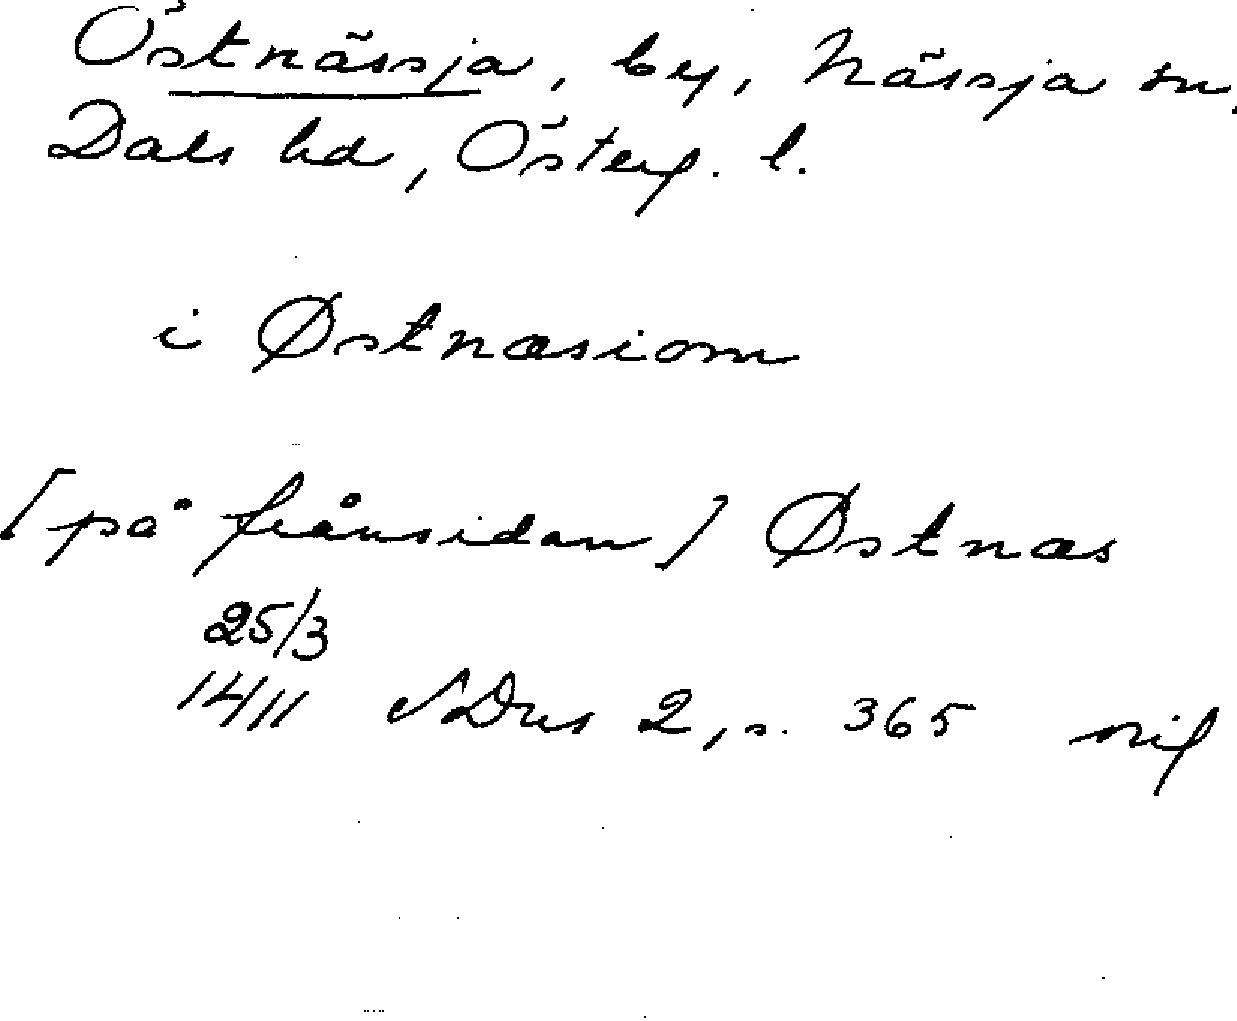 Östnässja, by, Nässja sn.
Dals hd, Österg. l.
i Østnæsiom
[på frånsidan] Østnæs
25/3
1411 SDns 2, s. 365 orig